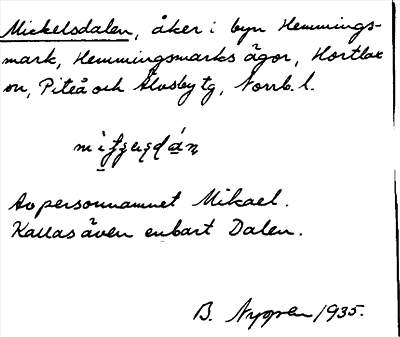 Mickelsdalen, åker i byn Hemmings-
mark, Hemmingsmarks ägor, Hortlax
sn, Piteå och Älvsby tg, Norrb. l.
Av personnamnet Mikael.
Kallas även enbart Dalen.
B. Nygren 1935.